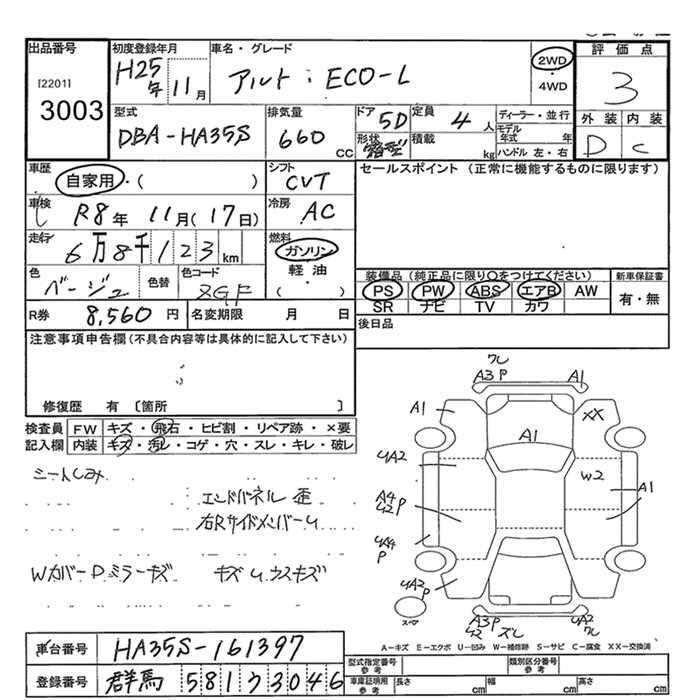 出品番号
[2201]
3003
初度登録年月
H25年 11月
車名・グレード
アルト: ECO-L
2WD
・
4WD
評価点
3
外装 内装
D C
型式
DBA-HA35S
排気量
660 CC
ドア
5D
形状
箱型
定員
4 人
積載
kg
ディーラー・並行
モデル年式 年
ハンドル 左・右
車歴
自家用・( )
シフト
CVT
セールスポイント (正常に機能するものに限ります)
車検
R8年 11月(17日)
冷房
AC
走行
6万8千123km
燃料
ガソリン
軽油
( )
色
ベージュ
色替
色コード
ZGF
装備品 (純正品に限り○をつけてください)
PS PW ABS エアB AW
SR ナビ TV カワ
新車保証書
有・無
R券 8,560 円
名変期限 月 日
後日品
注意事項申告欄(不具合内容等は具体的に記入して下さい)
修復歴 有 〔箇所 〕
検査員記入欄
FW キズ・飛石・ヒビ割・リペア跡・×要
内装 キズ・汚レ・コゲ・穴・スレ・キレ・破レ
シートしみ
エンドパネル 歪
右Rサイドメンバーu
Wカバー P ミラーキズ キズ u ウスキズ
ワレ
A3 P A1
A1 XX
A1
UA2 W2
A4 P
U2 A1
UA4
P
UA2
P UA2
スペア
A3P U2
U2 ズレ ワレ
A-キズ E-エクボ U-凹み W-補修跡 S-サビ C-腐食 XX-交換済
車台番号 HA35S-161397
登録番号 群馬 581 ス3046
型式指定番号 参考
類別区分番号 参考
車庫証明用 参考
長さ cm 幅 cm 高さ cm